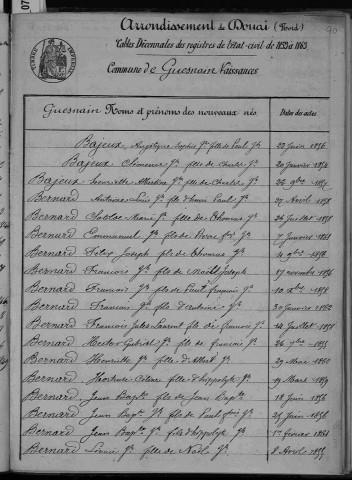 Arrondissement de Douai (Nord)
Tables Décennales des registres de l'état-civil de 1853 à 1863
Commune de Guesnain Naissances
Guesnain Noms et prénoms des nouveaux nés Dates des actes
Bajeux Angélique Sophie Jh fille de Paul Jh 22 Juin 1856
Bajeux Clémence Jh fille de Charles Jh 20 Janvier
Bajeux Henriette Albertine Jh fille de Charles Jh 26 9bre
Bernard Antoine Louis Jh fl d'henri Paul Jh 27 Avril 1858
Bernard Clotilde Marie Jh fille de Thomas Jh 24 Juillet 1858
Bernard Emmanuel Jh fls de Pierre Jh 7 Janvier 1861
Bernard Félix Joseph fls de Thomas Jh 4 9bre 1856
Bernard François Jh fls de Joseph 17 novembre
Bernard François Jh fils de Paul François Jh 10 Xbre
Bernard François Jh fils d'antoine Jh 30 Janvier 1862
Bernard François Jules Laurent fls de François Jh 14 Juillet
Bernard Hector Gabriel Jh fls de François Jh 26 7bre 1855
Bernard Henriette Jh fille d'Albert Jh 29 Mai 1860
Bernard Hortense Céline fille d'hippolyte Jh 19 Mars
Bernard Jean Bapte fls de Jean Bapte 18 Juin 1856
Bernard Jean Bapte Jh fls de Paul Jh 25 Juin 1856
Bernard Jean Bapte Jh fils d'hippolyte Jh 1er fevrier 1861
Bernard Louise Jh fille de Jh 8 Avril 1855